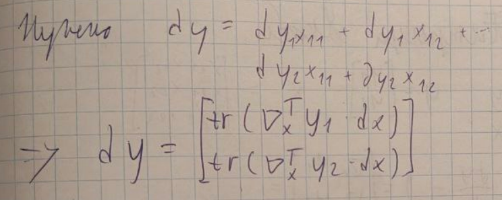 Нужно dy = dy₁x₁₁ + dy₁x₁₂ + ...
dy₂x₁₁ + ∂y₂x₁₂
=> dy = [tr(∇ₓᵀy₁·dx)
tr(∇ₓᵀy₂·dx)]